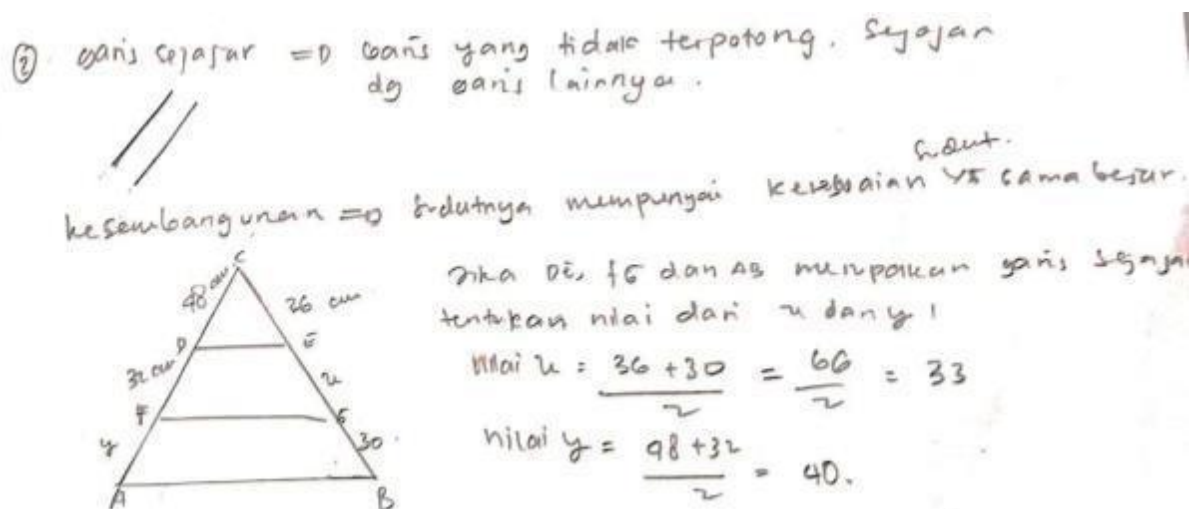 ② garis sejajar => Garis yang tidak terpotong. Sejajar
dg garis lainnya.
kesembangunan => sudutnya mempunyai kesesuaian yg sama besar.
sudut.
C
48 cm
36 cm
D
E
32 cm
x
F
G
y
30
A
B
Jika DE, FG dan AB merupakan garis sejajar
tentukan nilai dari x dan y!
Nilai x = 36 + 30 / 2 = 66 / 2 = 33
nilai y = 48 + 32 / 2 = 40.